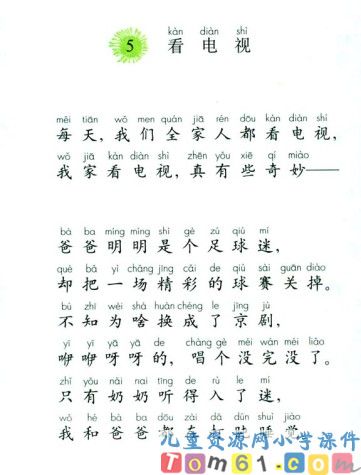 kàn diàn shì
5 看电视
měi tiān wǒ men quán jiā rén dōu kàn diàn shì
每天，我们全家人都看电视，
wǒ jiā kàn diàn shì zhēn yǒu xiē qí miào
我家看电视，真有些奇妙——
bà ba míng míng shì gè zú qiú mí
爸爸明明是个足球迷，
què bǎ yì chǎng jīng cǎi de qiú sài guān diào
却把一场精彩的球赛关掉。
bù zhī wèi shá huàn chéng le jīng jù
不知为啥换成了京剧，
yī yī yā yā de chàng gè méi wán méi liǎo
咿咿呀呀的，唱个没完没了。
zhǐ yǒu nǎi nai tīng de rù le mí
只有奶奶听得入了迷，
wǒ hé bà ba dōu zài dǎ dǔn shuì jiào
我和爸爸都在打盹睡觉
儿童资源网小学课件
Tom61.com